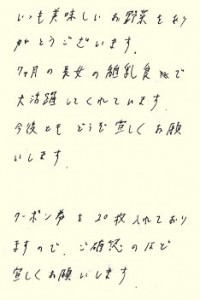 いつも美味しいお野菜をあり
がとうございます。
7ヶ月の長女の離乳食で
大活躍してくれています。
今後ともどうぞ宜しくお願
いします。
クーポン券を20枚入れており
ますので、ご確認のほど
宜しくお願いします。